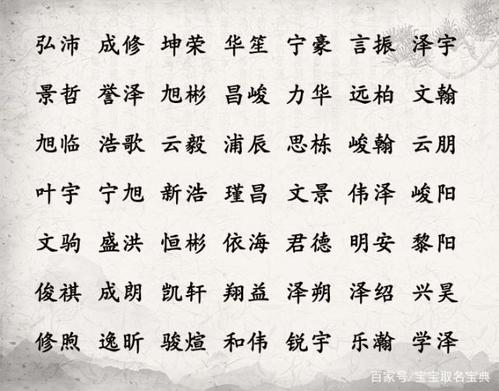 弘沛 成修 坤荣 华笙 宁豪 言振 泽宇
景哲 誉泽 旭彬 昌峻 力华 远柏 文翰
旭临 浩歌 云毅 浦辰 思栋 峻翰 云朋
叶宇 宁旭 新浩 瑾昌 文景 伟泽 峻阳
文驹 盛洪 恒彬 依海 君德 明安 黎阳
俊祺 成朗 凯轩 翔益 泽朔 泽绍 兴昊
修煦 逸昕 骏煊 和伟 锐宇 乐瀚 学泽
百家号/宝宝取名宝典